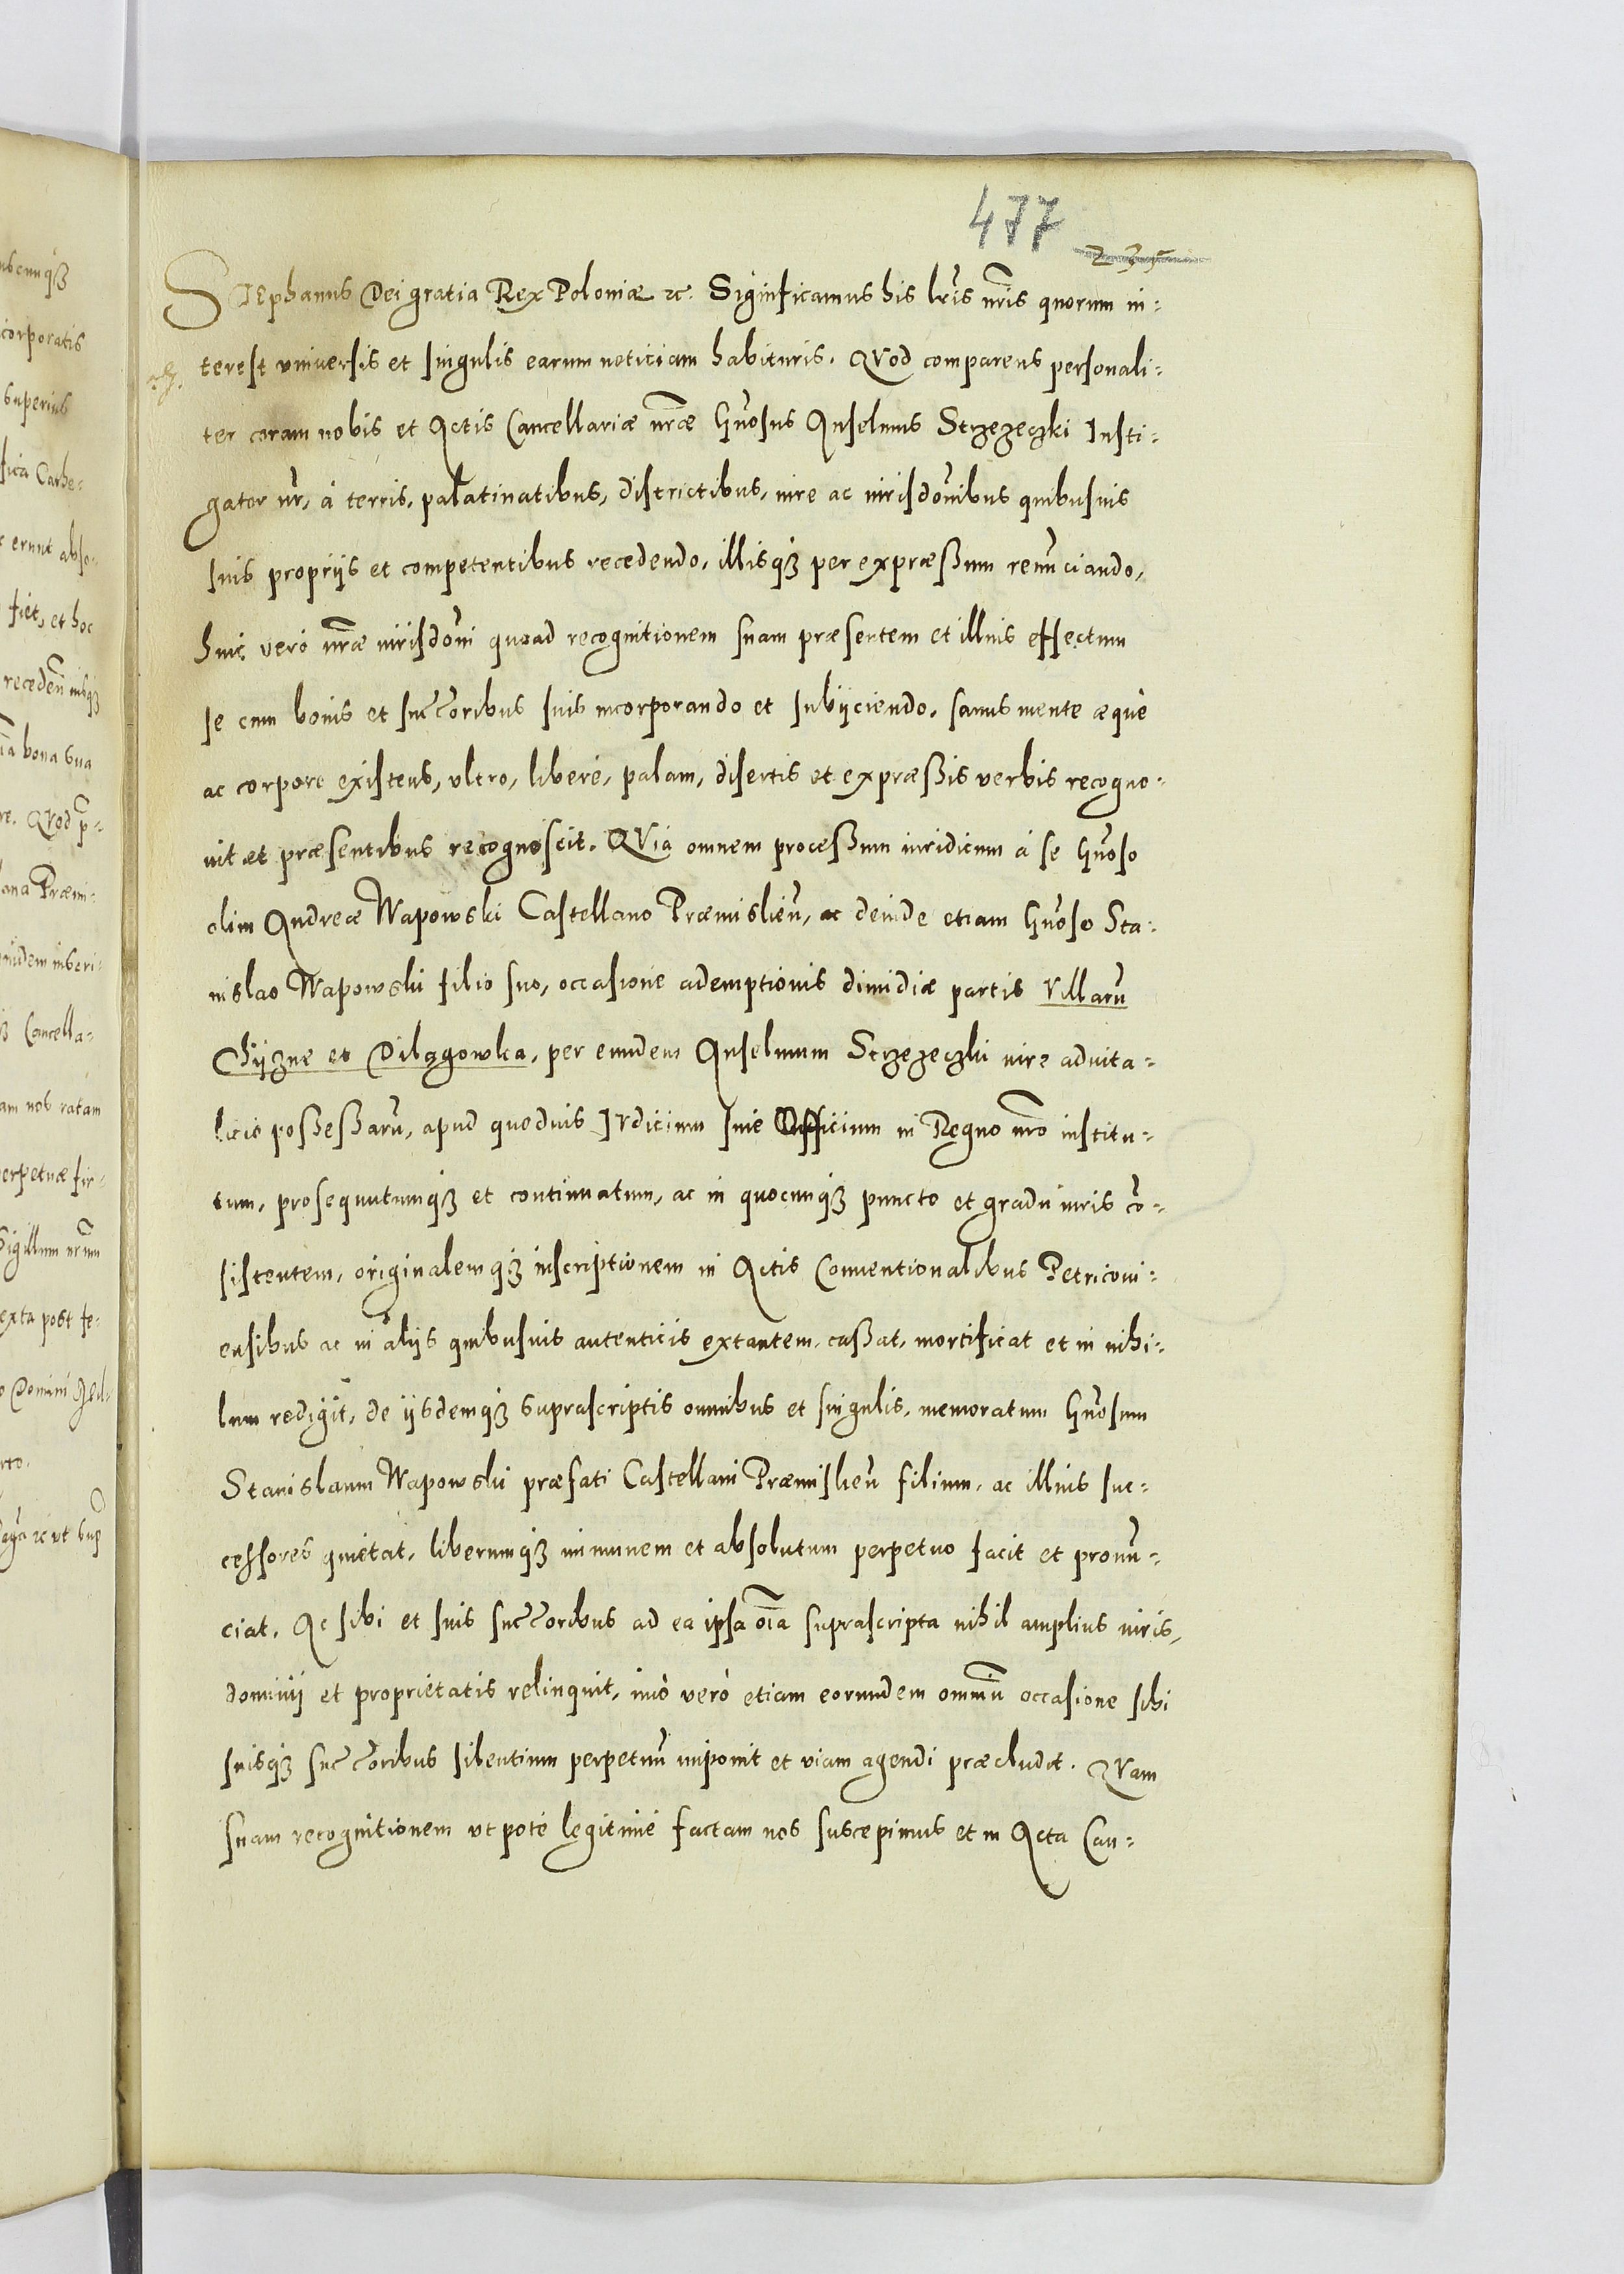 477
235
STEphanus Dei gratia Rex Poloniæ ꝛc. Significamus his lr̃is nr̃is quorum in=
terest vniuersis et singulis earum noticiam habituris. QVod comparens personali=
ter coram nobis et Actis Cancellariæ nr̃æ Gñosus Anselmus Strzezeczki Insti=
gator nr̃, á terris, palatinatibus, districtibus, iure ac iurisdõnibus quibusuis
suis proprijs et competentibus recedendo, illisqȝ per expræßum renũciando,
huic veró nr̃æ iurisdõni quoad recognitionem suam præsentem et illius effectum
se cum bonis et succ̃oribus suis incorporando et subijciendo, sanus mente æquè
ac corpore existens, vltro, liberé, palam, disertis et expræßis verbis recogno=
uit et præsentibus recognoscit. QVia omnem proceßum iuridicum á se Gñoso
olim Andreæ Wapowski Castellano Præmislieñ, ac deinde etiam Gñoso Sta=
nislao Wapowski filio suo, occasione ademptionis dimidiæ partis Villarũ
Chijzne et Dilągowka, per eundem Anselmum Strzezeczki iure aduita=
licio poßeßarũ, apud quoduis IVdicium siue Officium in Regno nr̃o institu=
tum, prosequutumqȝ et continuatum, ac in quocunqȝ puncto et gradu iuris cõ=
sistentem, originalemqȝ inscriptionem in Actis Conuentionalibus Petricoui=
ensibus ac in alijs quibusuis autenticis extantem, caßat, mortificat et in nihi=
lum redigit, de ijsdemqȝ suprascriptis omnibus et singulis, memoratum Gñosum
Stanislaum Wapowski præfati Castellani Præmislieñ filium, ac illius suc=
cessores quietat, liberumqȝ immunem et absolutum perpetuo facit et pronũ=
ciat. Ac sibi et suis succ̃oribus ad ea ipsa oĩa suprascripta nihil amplius iuris,
dominij et proprietatis relinquit, imò verò etiam eorundem omniũ occasione sibi
suisqȝ succ̃oribus silentium perpetuũ imponit et viam agendi præcludit. QVam
suam recognitionem vt poté legitimé factam nos suscepimus et in Acta Can=